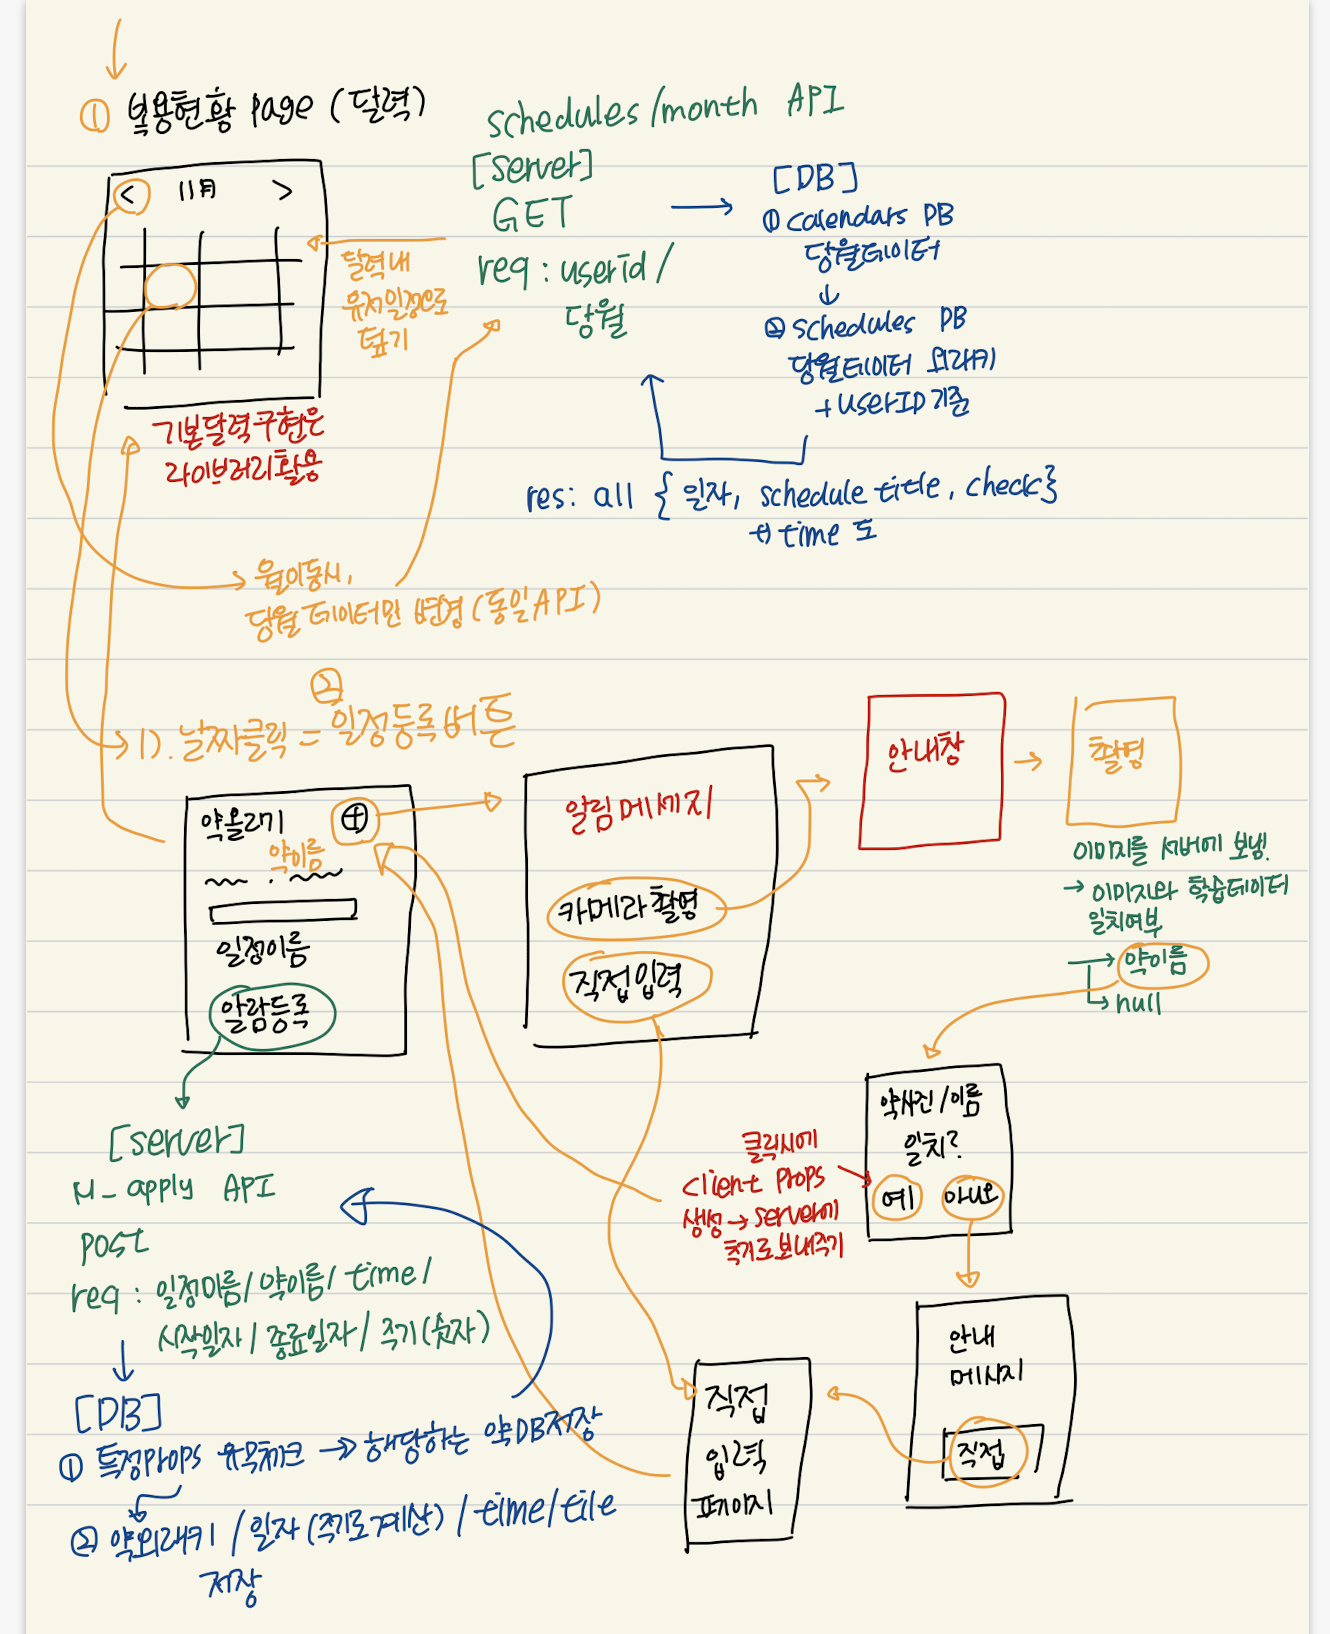 ① 복용현황 page (달력)
< 11月 >
달력내
유저일정으로
덮기
기본달력구현은
라이브러리활용
schedules/month API
[server]
GET
req : userid /
당월
[DB]
① calendars DB
당월데이터
② schedules DB
당월데이터 외래키
+ userID 기준
res: all { 일자, schedule title, check}
+) time 도
월이동시,
당월 데이터만 변경 (동일API)
②
1). 날짜클릭 = 일정등록버튼
약올리기 +
약이름
일정이름
알람등록
알림 메세지
카메라 촬영
직접입력
안내창
촬영
이미지를 서버에 보냄.
→ 이미지와 학습데이터
일치여부
약이름
null
약사진 / 이름
일치?
예 아니오
클릭시에
client props
생성 → server에
추가로 보내주기
안내
메시지
직접
직접
입력
페이지
[server]
M-apply API
post
req : 일정이름 / 약이름 / time /
시작일자 / 종료일자 / 주기(숫자)
[DB]
① 특정props 유무체크 → 해당하는 약DB저장
② 약외래키 / 일자 (주기로계산) / time/tile
저장